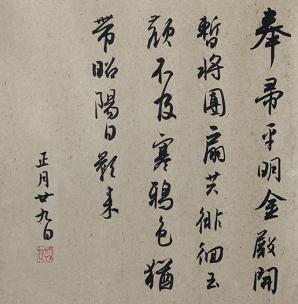 奉帚平明金殿開
暫將團扇共徘徊玉
顏不及寒鴉色猶
帶昭陽日影來
正月廿九日